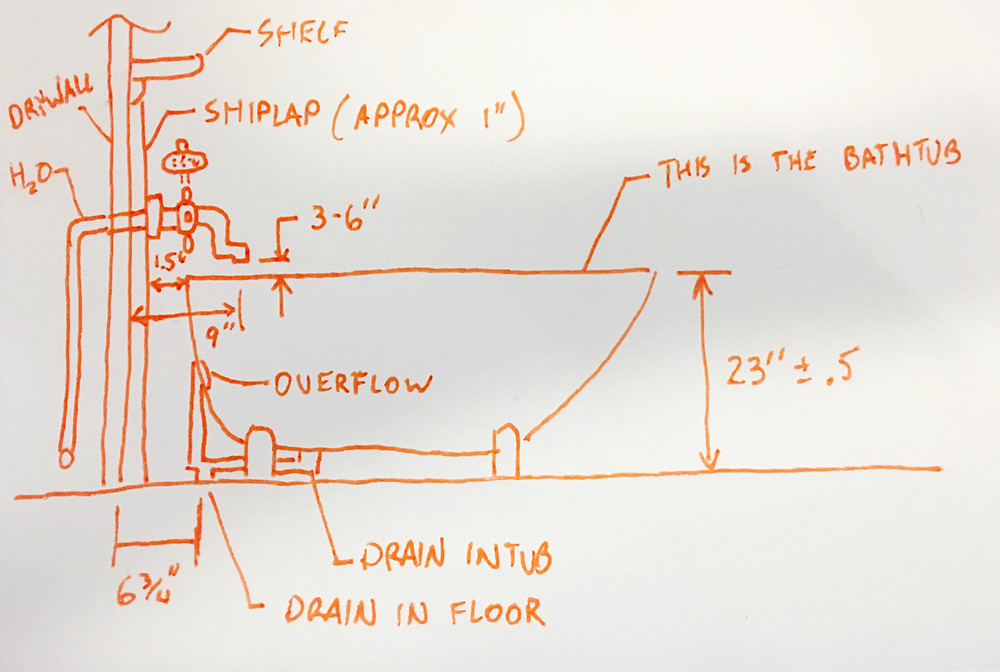 SHELF
DRYWALL
SHIPLAP (APPROX 1")
H2O
THIS IS THE BATHTUB
3-6"
1.5"
9"
OVERFLOW
23" ± .5
DRAIN IN TUB
6 3/4"
DRAIN IN FLOOR